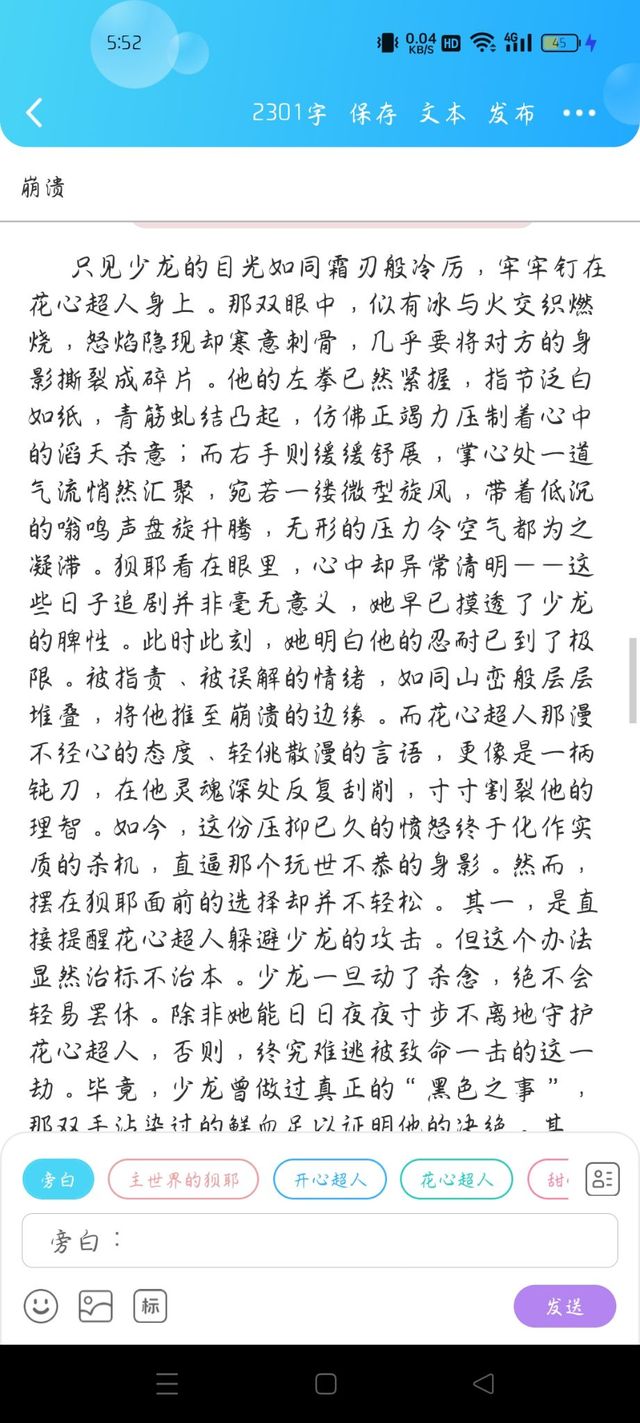 5:52
0.04
KB/S
HD
4G
45
2301字 保存 文本 发布
崩溃
只见少龙的目光如同霜刃般冷厉，牢牢钉在
花心超人身上。那双眼中，似有冰与火交织燃
烧，怒焰隐现却寒意刺骨，几乎要将对方的身
影撕裂成碎片。他的左拳已然紧握，指节泛白
如纸，青筋虬结凸起，仿佛正竭力压制着心中
的滔天杀意；而右手则缓缓舒展，掌心处一道
气流悄然汇聚，宛若一缕微型旋风，带着低沉
的嗡鸣声盘旋升腾，无形的压力令空气都为之
凝滞。狈耶看在眼里，心中却异常清明——这
些日子追剧并非毫无意义，她早已摸透了少龙
的脾性。此时此刻，她明白他的忍耐已到了极
限。被指责、被误解的情绪，如同山峦般层层
堆叠，将他推至崩溃的边缘。而花心超人那漫
不经心的态度、轻佻散漫的言语，更像是一柄
钝刀，在他灵魂深处反复刮削，寸寸割裂他的
理智。如今，这份压抑已久的愤怒终于化作实
质的杀机，直逼那个玩世不恭的身影。然而，
摆在狈耶面前的选择却并不轻松。其一，是直
接提醒花心超人躲避少龙的攻击。但这个办法
显然治标不治本。少龙一旦动了杀念，绝不会
轻易罢休。除非她能日日夜夜寸步不离地守护
花心超人，否则，终究难逃被致命一击的这一
劫。毕竟，少龙曾做过真正的“黑色之事”，
那双手沾染过的鲜血足以证明他的决绝。其
旁白 主世界的狈耶 开心超人 花心超人 甜
旁白：
标
发送